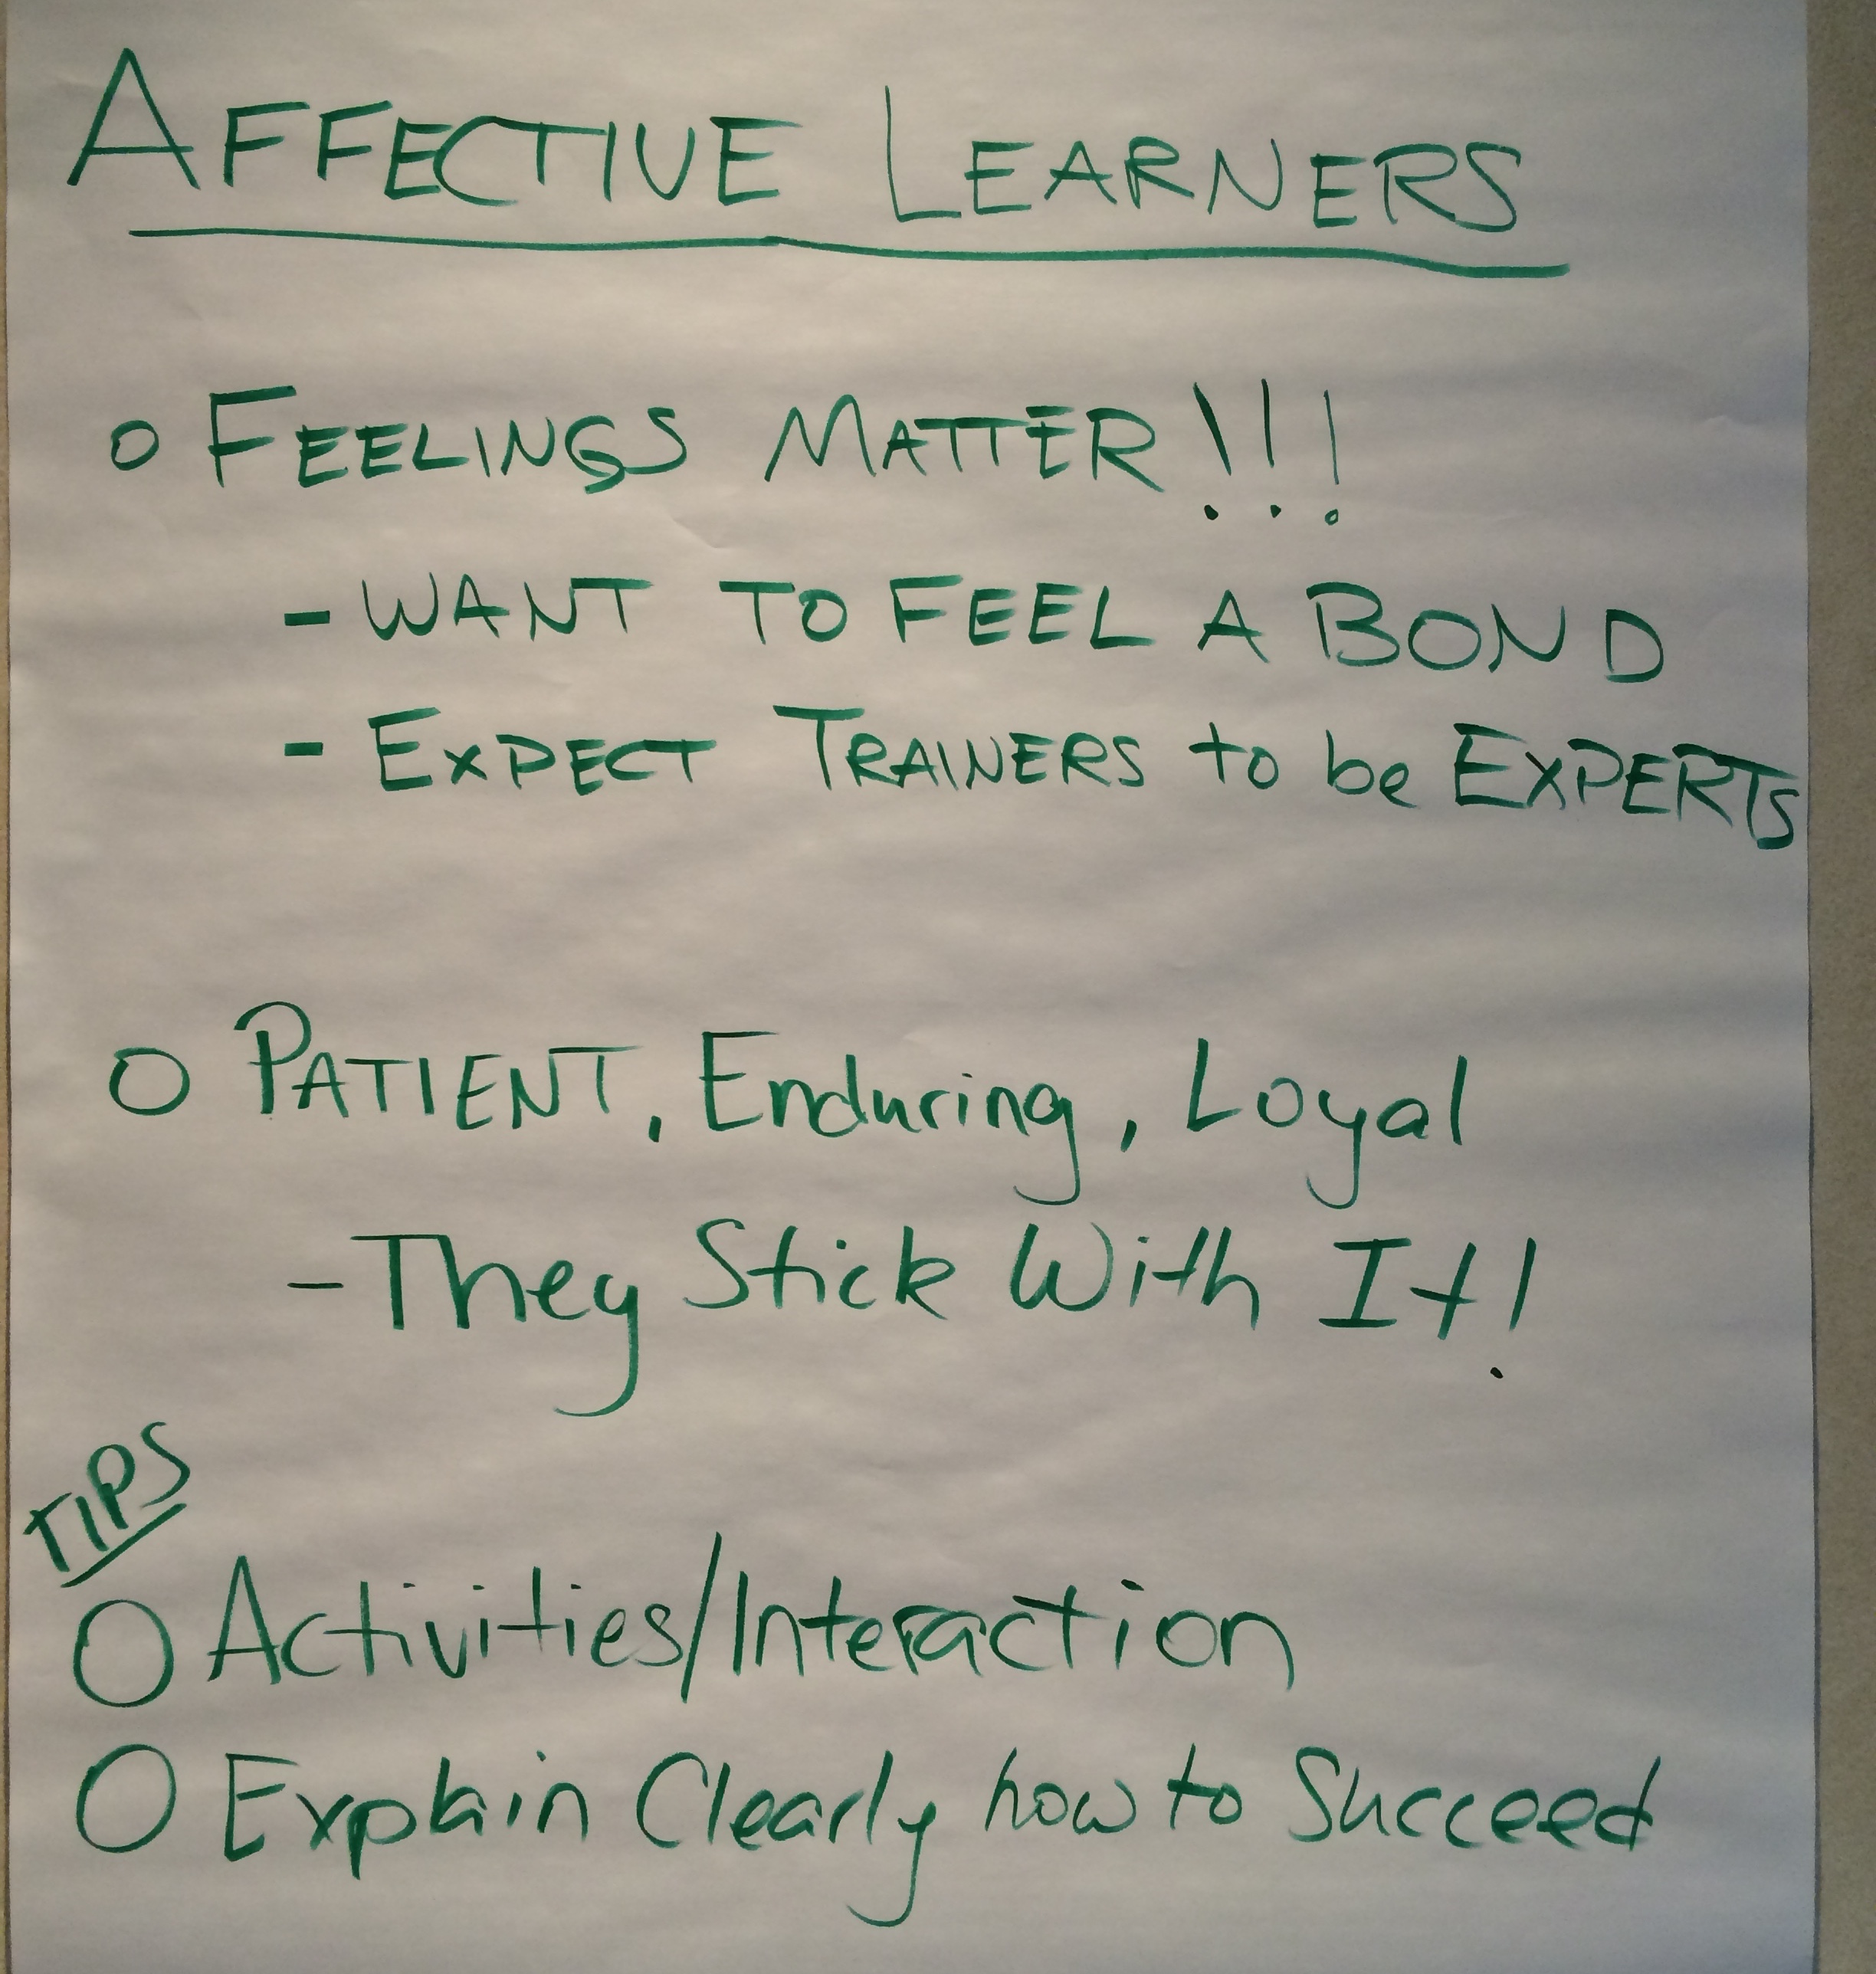 AFFECTIVE LEARNERS
o FEELINGS MATTER!!!
- WANT TO FEEL A BOND
- EXPECT TRAINERS to be EXPERTS
o PATIENT, Enduring, Loyal
- They Stick With It!
TIPS
o Activities/Interaction
o Explain Clearly how to Succeed